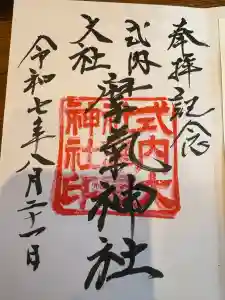 奉拝記念
式内
大社
摩氣神社
令和七年八月二十一日
式内大
神社印